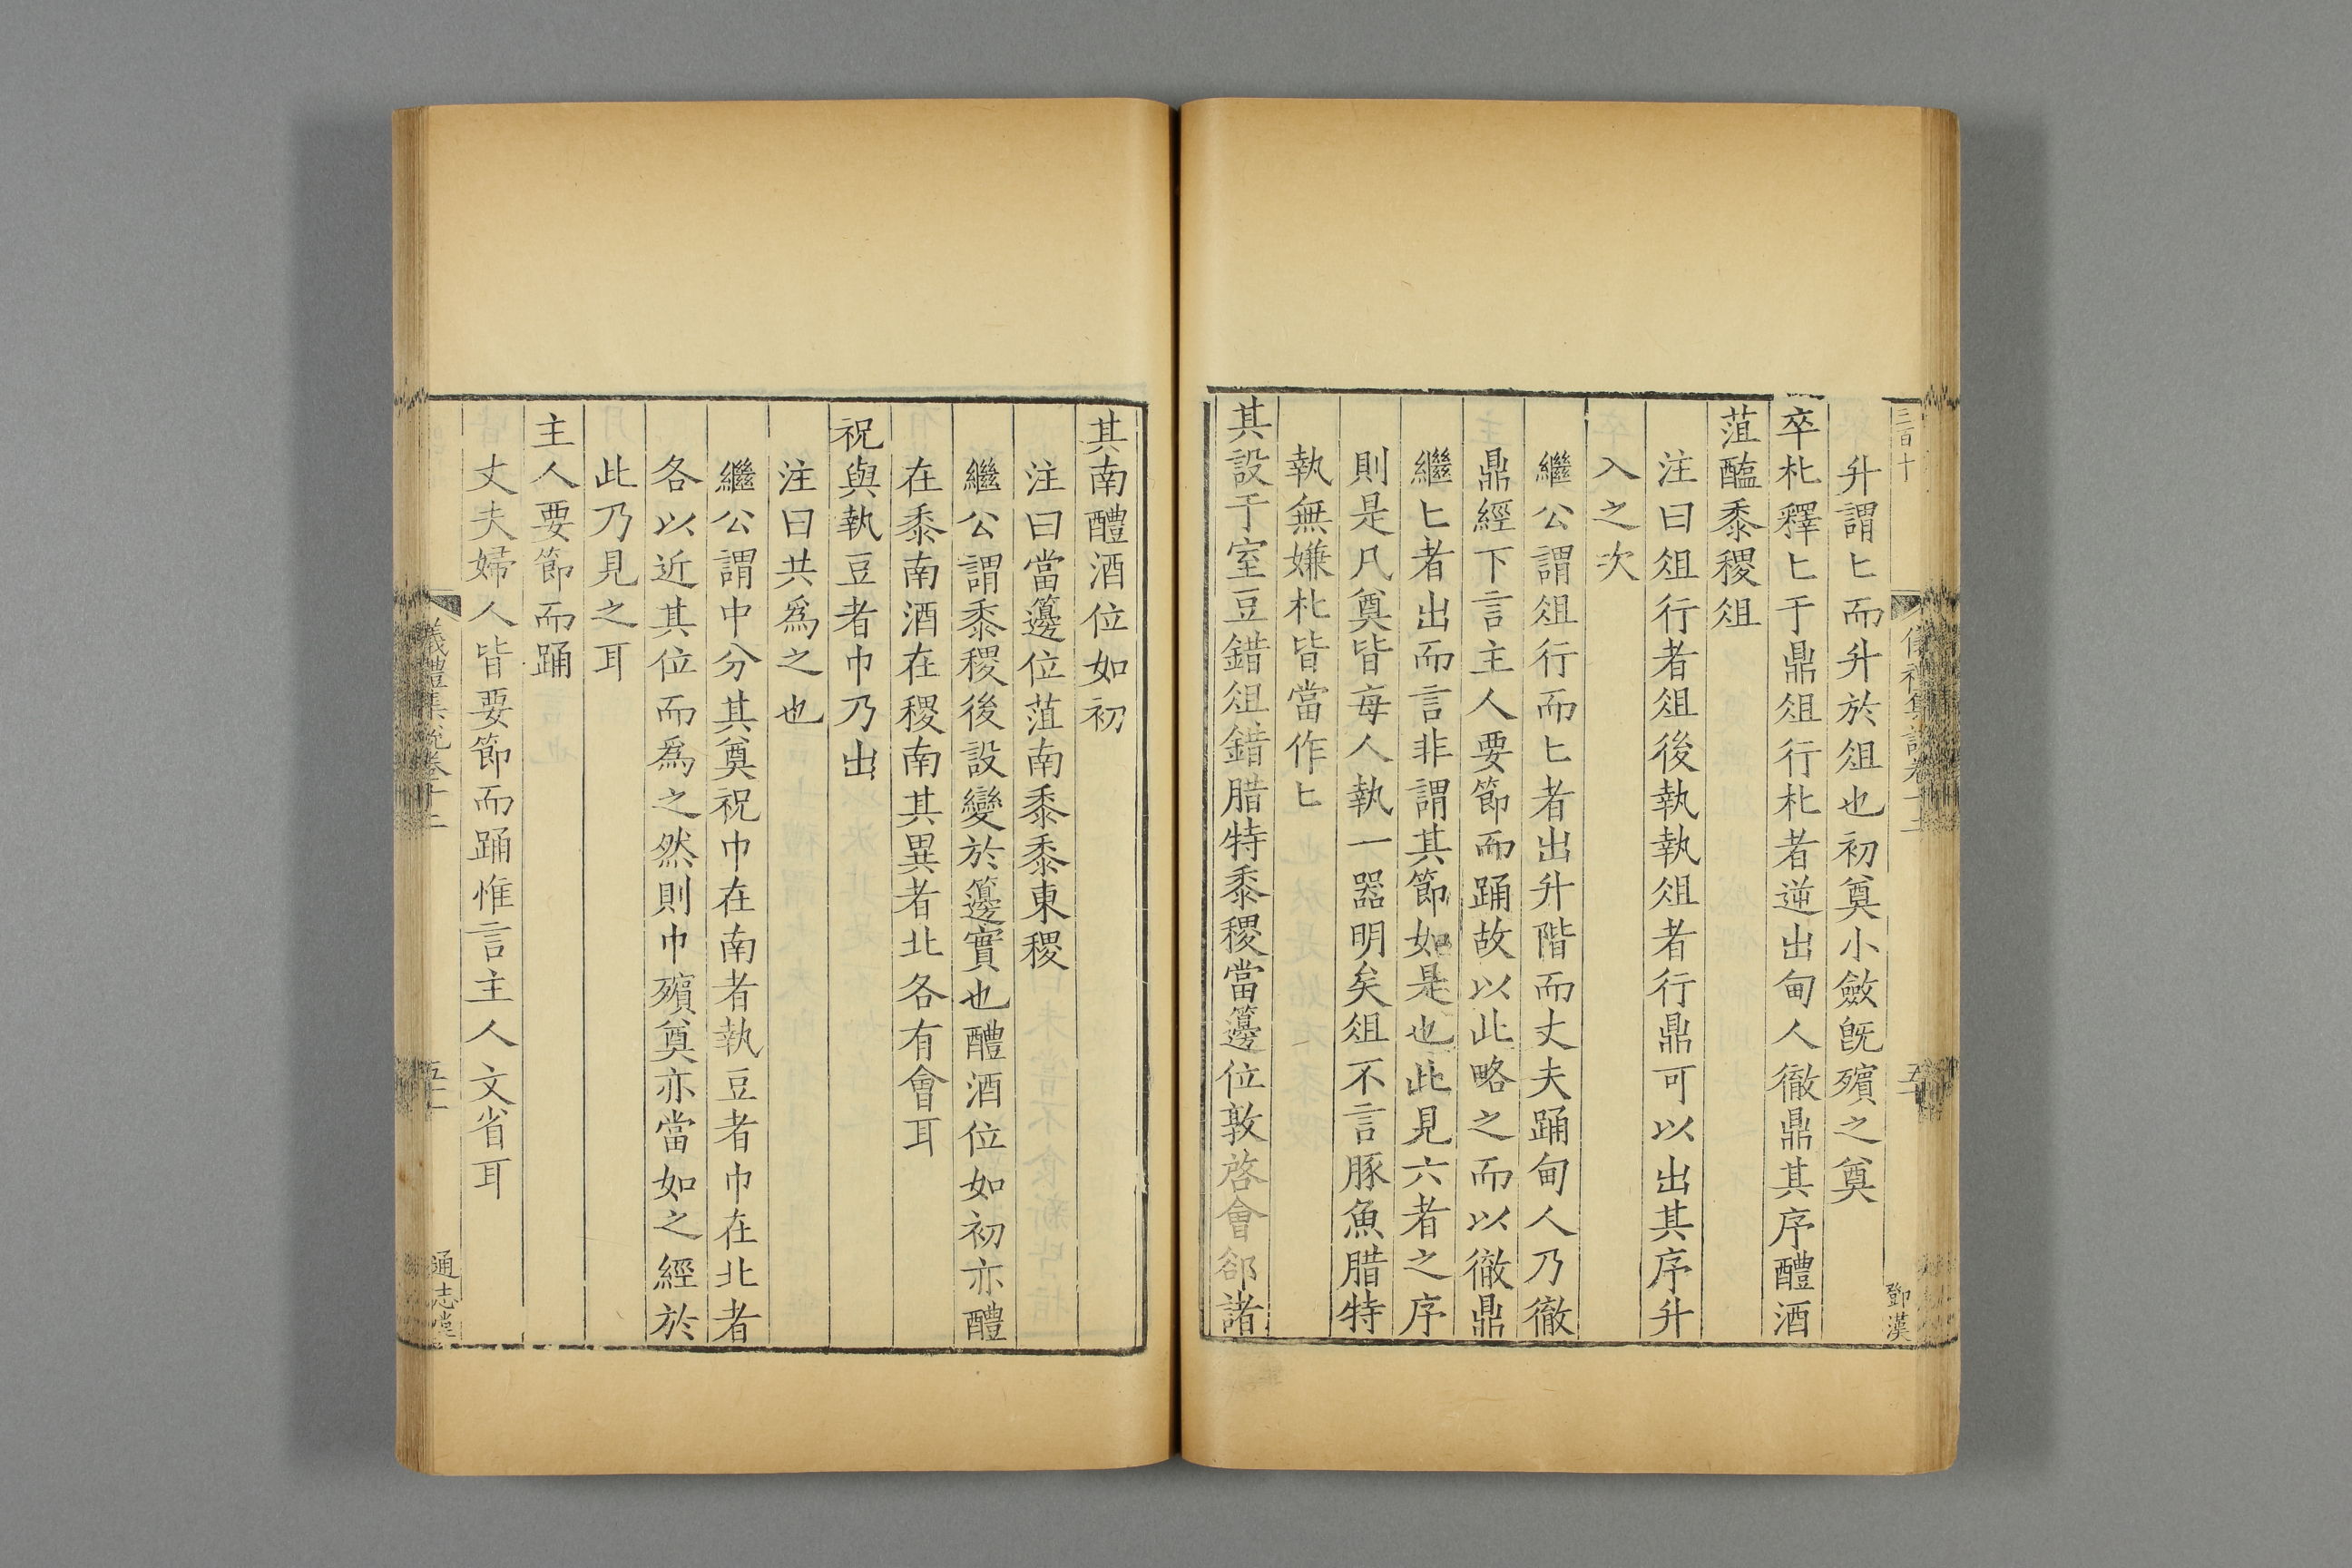 三百十
升謂匕而升於俎也初奠小斂旣殯之奠
卒朼釋匕于鼎俎行朼者逆出甸人徹鼎其序醴酒
菹醢黍稷俎
注曰俎行者俎後執執俎者行鼎可以出其序升
入之次
繼公謂俎行而匕者出升階而丈夫踊甸人乃徹
鼎經下言主人要節而踊故以此略之而以徹鼎
繼匕者出而言非謂其節如是也此見六者之序
則是凡奠皆每人執一器明矣俎不言豚魚腊特
執無嫌朼皆當作匕
其設于室豆錯俎錯腊特黍稷當籩位敦啓會郤諸
鄧漢
其南醴酒位如初
注曰當籩位菹南黍黍東稷
繼公謂黍稷後設變於籩實也醴酒位如初亦醴
在黍南酒在稷南其異者北各有會耳
祝與執豆者巾乃出
注曰共爲之也
繼公謂中分其奠祝巾在南者執豆者巾在北者
各以近其位而爲之然則巾殯奠亦當如之經於
此乃見之耳
主人要節而踊
丈夫婦人皆要節而踊惟言主人文省耳
儀禮集說卷十二
通志堂